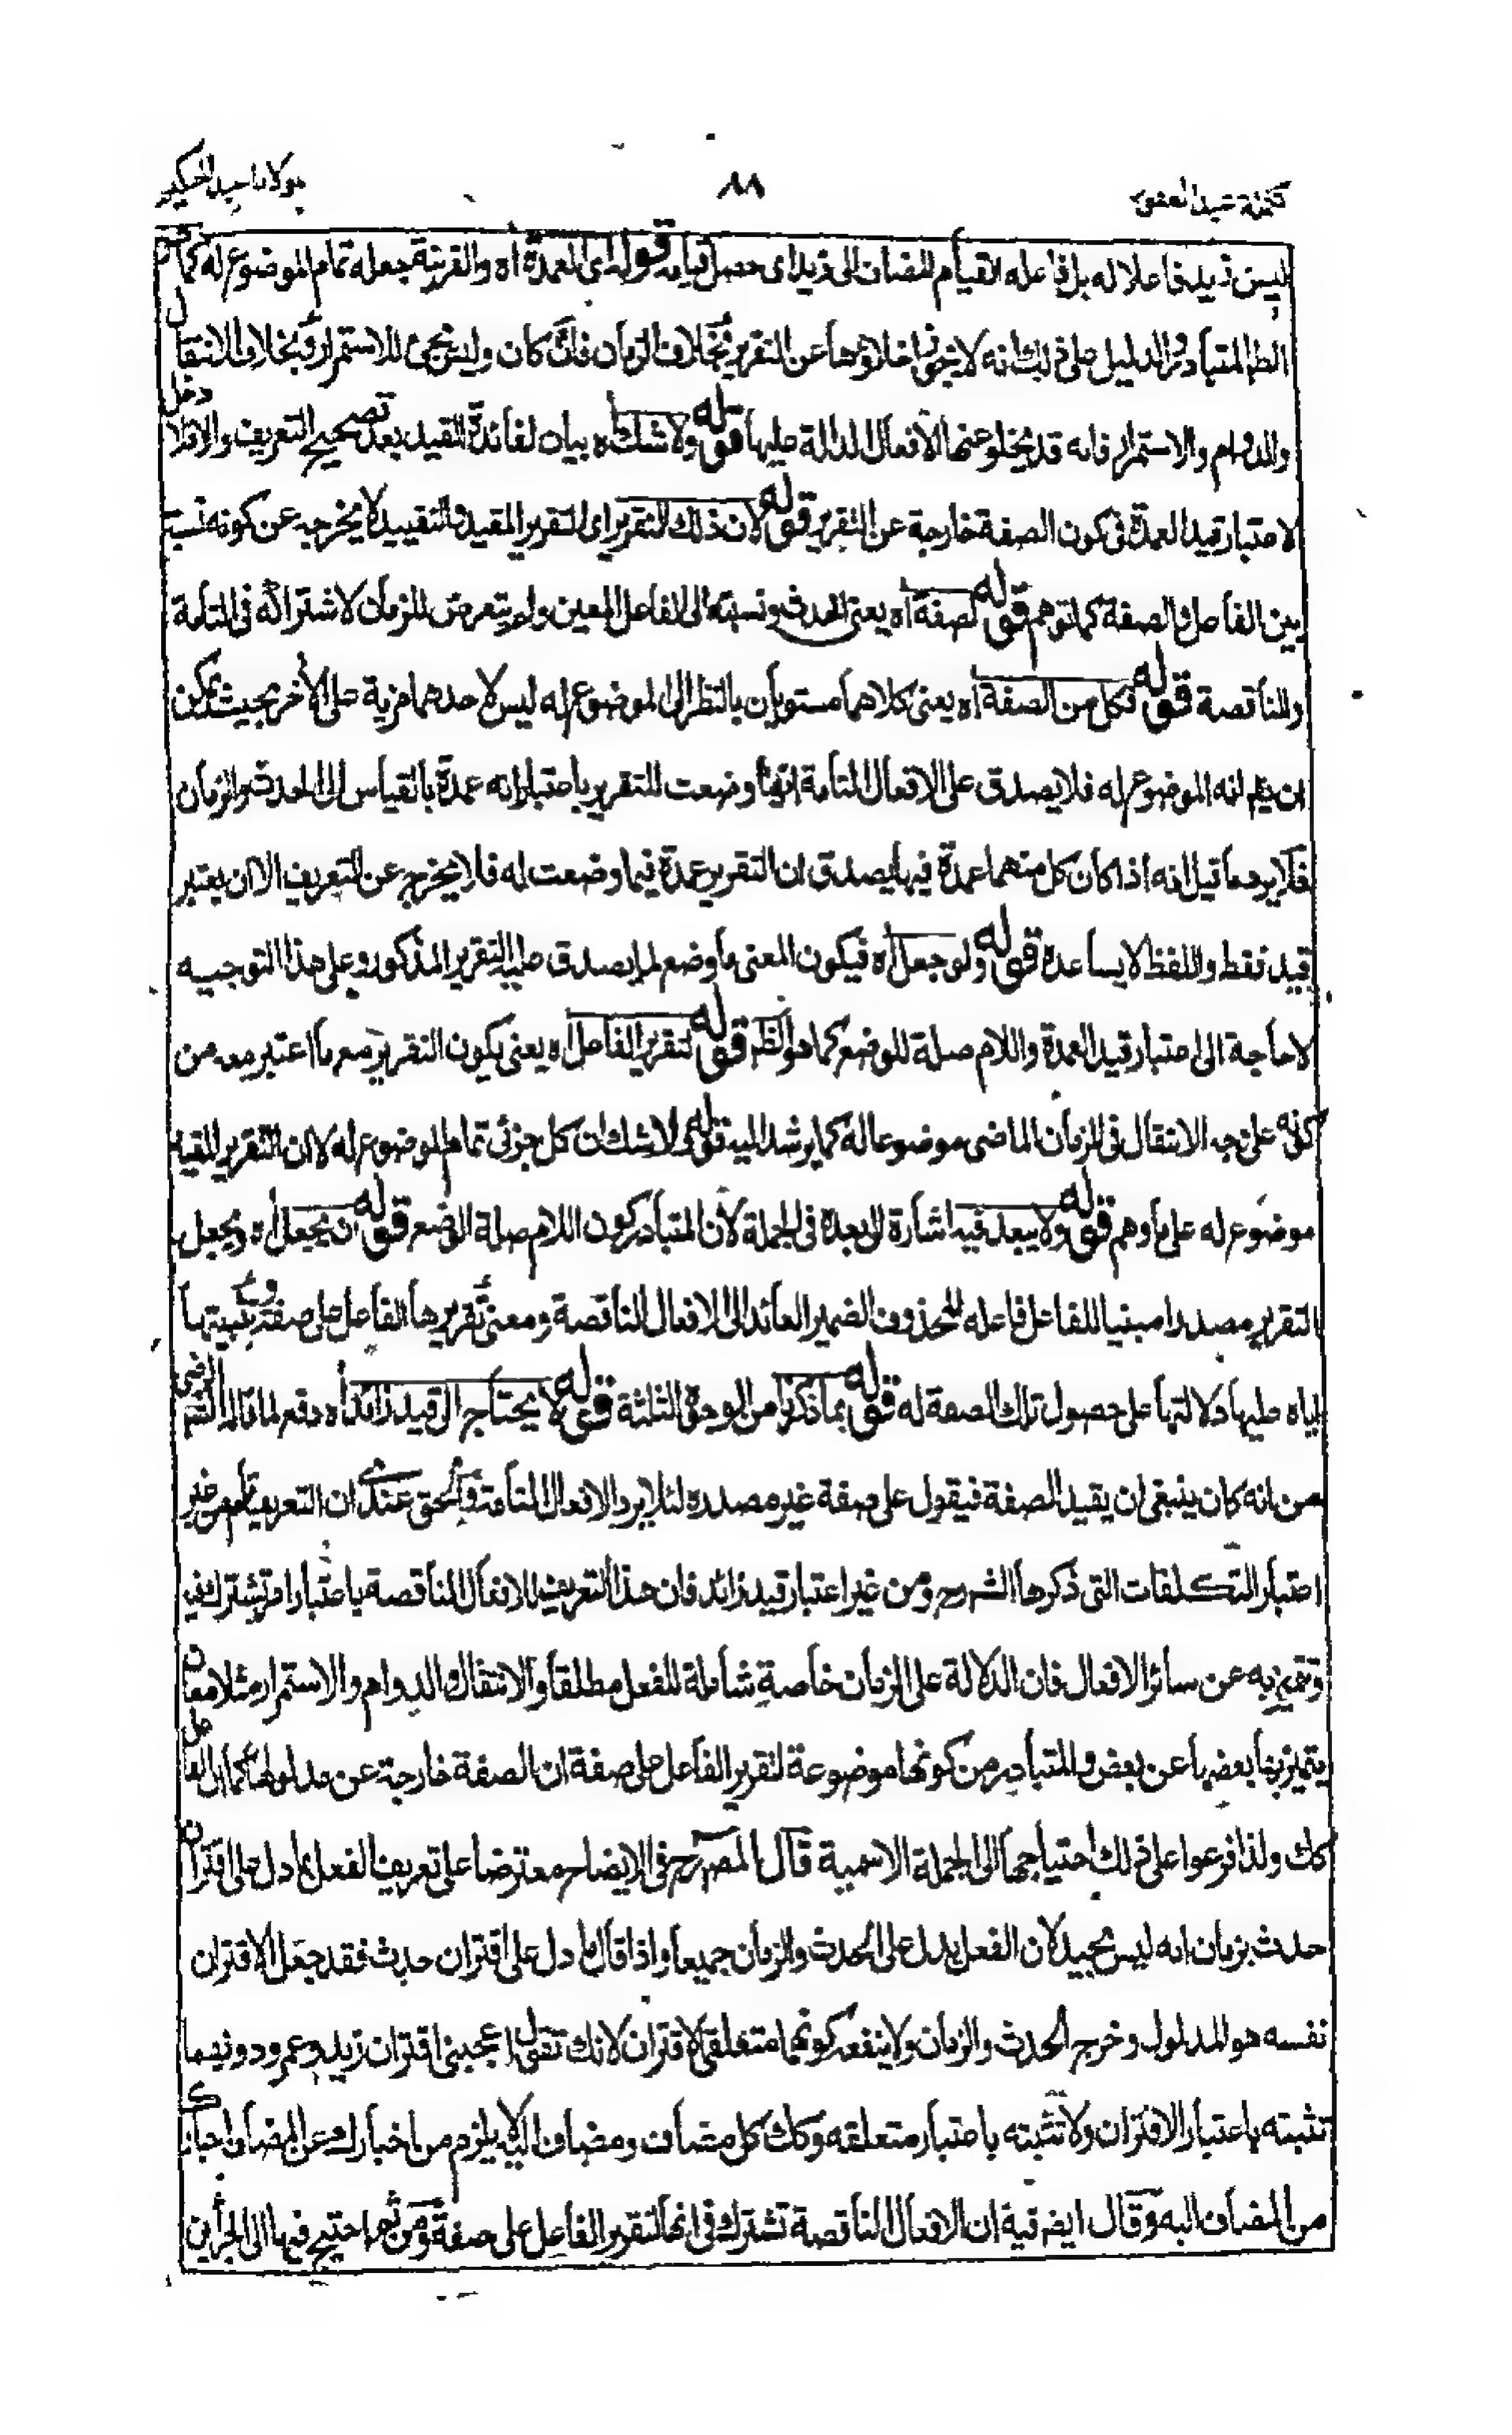 تكملة عبد الغفور ٨٨ مولانا عبد الحكيم
ليس زيد فاعلا له بل فاعله القيام المضاف الى زيد اى حصل قيامه قوله اى العمدة اه والقرينة جعله تمام الموضوع له كما هو
الظ المتبادر والدليل على ذلك انه لا يجوز اخلاؤها عن التقرير بخلاف الزمان فان كان وليس يجئ للاستمرار وبخلاف الانتقال
والدوام والاستمرار فانه قد يخلو عنها الافعال الدالة عليها قوله ولا شك اه بيان لفائدة القيد بعد تصحيح التعريف والا فلا دخل
لاعتبار قيد العمدة فى كون الصفة خارجة عن التقرير قوله لان ذلك التقرير اى التقرير المقيد والتقييد لا يخرجه عن كونه نسبة
بين الفاعل والصفة كما توهم قوله لصفة اه يعنى الحدث ونسبته الى الفاعل المعين ولم يتعرض للزمان لاشتراكه فى التامة
والناقصة قوله فكل من الصفة اه يعنى كلاهما مستويان بالنظر الى الموضوع له ليس لاحدهما مزية على الآخر بحيث يمكن
ان يقم انه الموضوع له فلا يصدق على الافعال التامة انها وضعت للتقرير باعتبار انه عمدة بالقياس الى الحدث والزمان
فلا يرد ما قيل انه اذا كان كل منهما عمدة فيها يصدق ان التقرير عمدة فيما وضعت له فلا يخرج عن التعريف الا ان يعتبر
قيد فقط واللفظ لا يساعده قوله ولو جعل اه فيكون المعنى ما وضع لما يصدق عليه التقرير المذكور وعلى هذا التوجيه
لا حاجة الى اعتبار قيد العمدة واللام صلة للوضع كما هو الظ قوله لتقرير الفاعل اه يعنى يكون التقرير مع ما اعتبر معه من
كونه على وجه الانتقال فى الزمان الماضى موضوعا له كما يرشد اليه قوله ولا شك ان كل جزئى تمام الموضوع له لا ان التقرير المقيد
موضوع له على ما وهم قوله ولا يبعد فيه اشارة الى بعده فى الجملة لان المتبادر كون اللام صلة الوضع قوله ان يجعل اه ويجعل
التقرير مصدرا مبنيا للفاعل فاعله المحذوف الضمير العائد الى الافعال الناقصة ومعنى تقريرها الفاعل على صفة وتثبيتها
اياه عليها دلالتها على حصول تلك الصفة له قوله بما ذكرنا من الوجوه الثلثة قوله لا يحتاج الى قيد زائد اه دفع لما قال الشيخ الرضى
من انه كان ينبغى ان يقيد الصفة فيقول على صفة غير مصدره لئلا يرد الافعال التامة والحق عندى ان التعريف تام من غير
اعتبار التكلفات التى ذكرها الشرح ومن غير اعتبار قيد زائد فان هذا التعريف للافعال الناقصة باعتبار امر تشترك فيه
وتتميز به عن سائر الافعال فان الدلالة على الزمان خاصة شاملة للفعل مطلقا والانتقال والدوام والاستمرار مثلا معان
يتميز بها بعضها عن بعض والمتبادر من كونها موضوعة لتقرير الفاعل على صفة ان الصفة خارجة عن مدلولها كما ان الفاعل
كك ولذا فرعوا على ذلك احتياجها الى الجملة الاسمية قال المصرح فى الايضاح معترضا على تعريف الفعل بما دل على اقتران
حدث بزمان انه ليس بجيد لان الفعل يدل على الحدث والزمان جميعا واذا قال ما دل على اقتران حدث فقد جعل الاقتران
نفسه هو المدلول وخرج الحدث والزمان ولا ينفعه كونهما متعلقى الاقتران لانك تقول اعجبنى اقتران زيد وعمرو دونهما
تثبته باعتبار الاقتران ولا تثبته باعتبار متعلقه وكك كل مضاف ومضاف اليه لا يلزم من اخبارك عن المضاف اخبارك
من المضاف اليه وقال ايضا فيه ان الافعال الناقصة تشترك فى انها لتقرير الفاعل على صفة ومن ثم احتيج فيها الى الجزأين